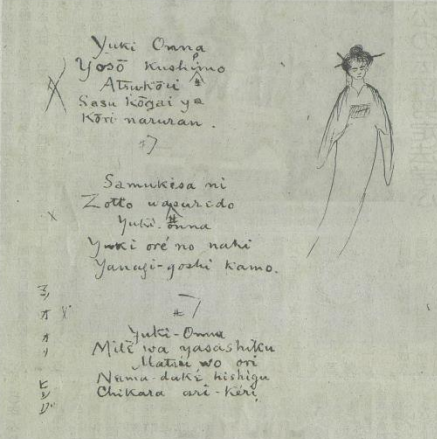 Yuki Onna
Yosō Kushimo
Atsukōri
Sasu Kōgai ya
Kōri naruran.
Samukésa ni
Zotto
Yuki-onna
Yuki oré no naki
Yanagi-goshi kamo.
Yuki-Onna
Mité wa yasashiku
Matsu wo ori
Nama-daké hishigu
Chikara ari-kéri